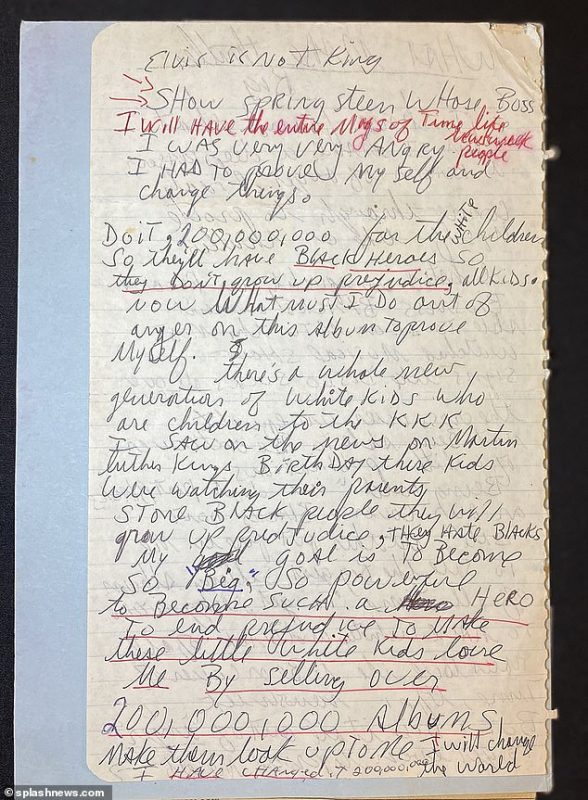 Elvis is Not King
SHow SpringSteen WHose BOSS
I will HAVE the entire Mags of Time like
Newsweek
I WAS very very Angry people
I HAD To prove My self and
change things.
White
Do it, 200,000,000 for the children
So they'll have BLACK Heroes So
they Don't grow up prejudice, all KIDS.
now What must I Do out of
anger on this Album To prove
Myself.
there's a whole new
generation of White KIDS who
are children to the KKK
I SAW on the news on Martin
luther Kings BirthDAY these Kids
were watching their parents
STone BLACK people they will
grow up predjudice, THey HAte BlAcKs
My goal is To Become
So "Big," So powerful
to Become SucH a HERO
To end prejudice To MAke
these little white Kids love
Me By selling over
200,000,000 Albums
MAke them look up To me I will change
the world
I HAVE changed it 200,000,000
© splashnews.com